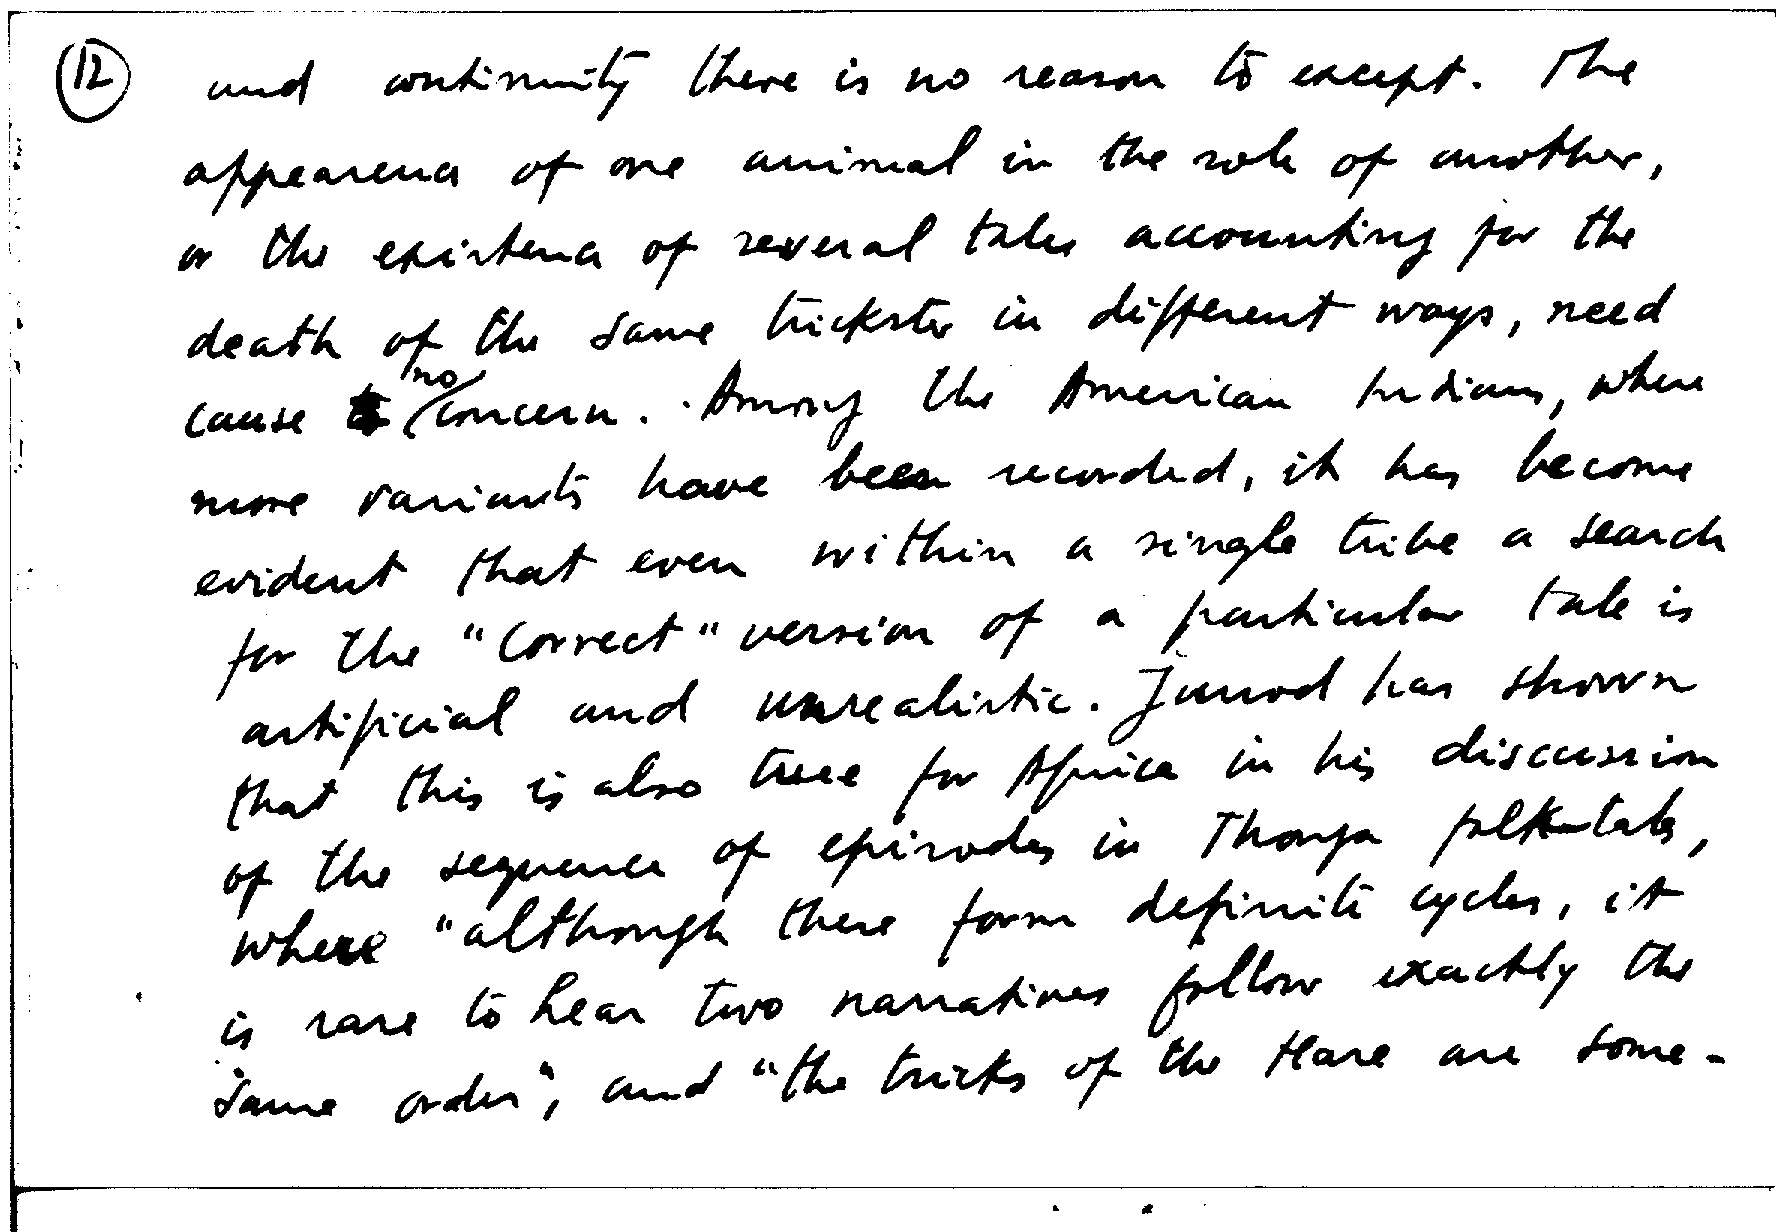 12 and continuity there is no reason to except. The
appearence of one animal in the role of another,
or the existence of several tales accounting for the
death of the same trickster in different ways, need
cause no concern. Among the American Indians, where
more variants have been recorded, it has become
evident that even within a single tribe a search
for the "correct" version of a particular tale is
artificial and unrealistic. Junod has shown
that this is also true for Africa in his discussion
of the sequence of episodes in Thonga folk-tales,
where "although these form definite cycles, it
is rare to hear two narratives follow exactly the
same order", and "the tricks of the Hare are some-